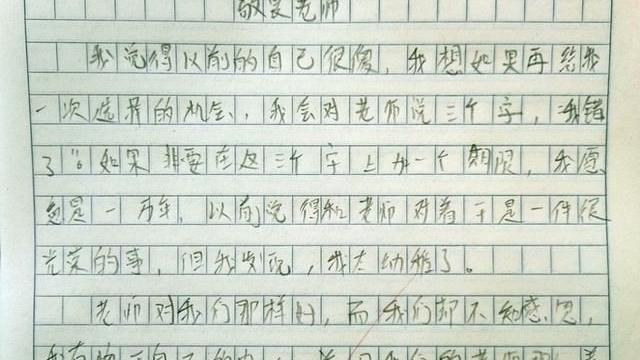 敬爱老师
我觉得以前的自己很傻,我想如果再给我
一次选择的机会,我会对老师说三个字,“我错
了”。如果非要在这三个字上加一个期限,我愿
意是一万年,以前觉得和老师对着干是一件很
光荣的事,但我发现,我太幼稚了。
老师对我们那样好,而我们却不知感恩,